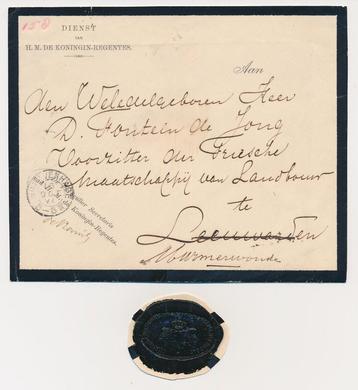 158
DIENST
VAN
H. M. DE KONINGIN-REGENTES.
Aan
den Weledelgeboren Heer
D. Fontein de Jong
Voorzitter der Friesche
Maatschappij van Landbouw
te
Leeuwarden
Murmerwoude
Secretaris
de Koningin-Regentes.